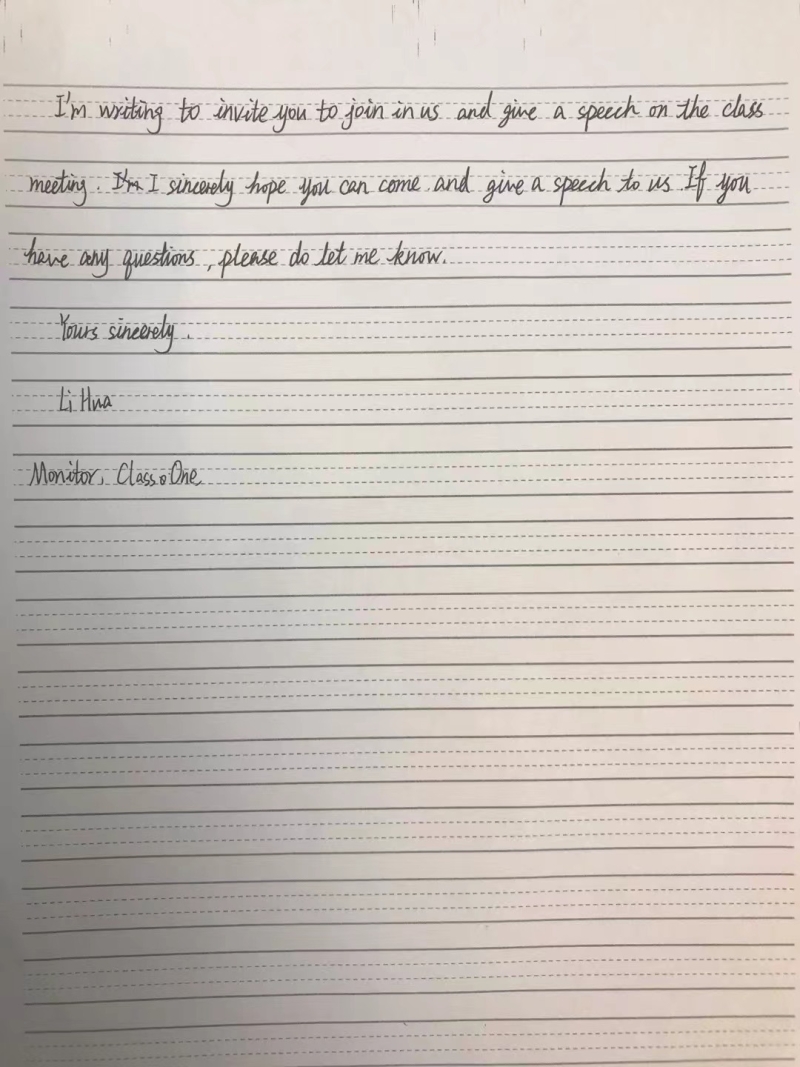 I'm writing to invite you to join in us and give a speech on the class
meeting. I'm I sincerely hope you can come and give a speech to us If you
have any questions, please do let me know.
Yours sincerely.
Li Hua
Monitor, Class One